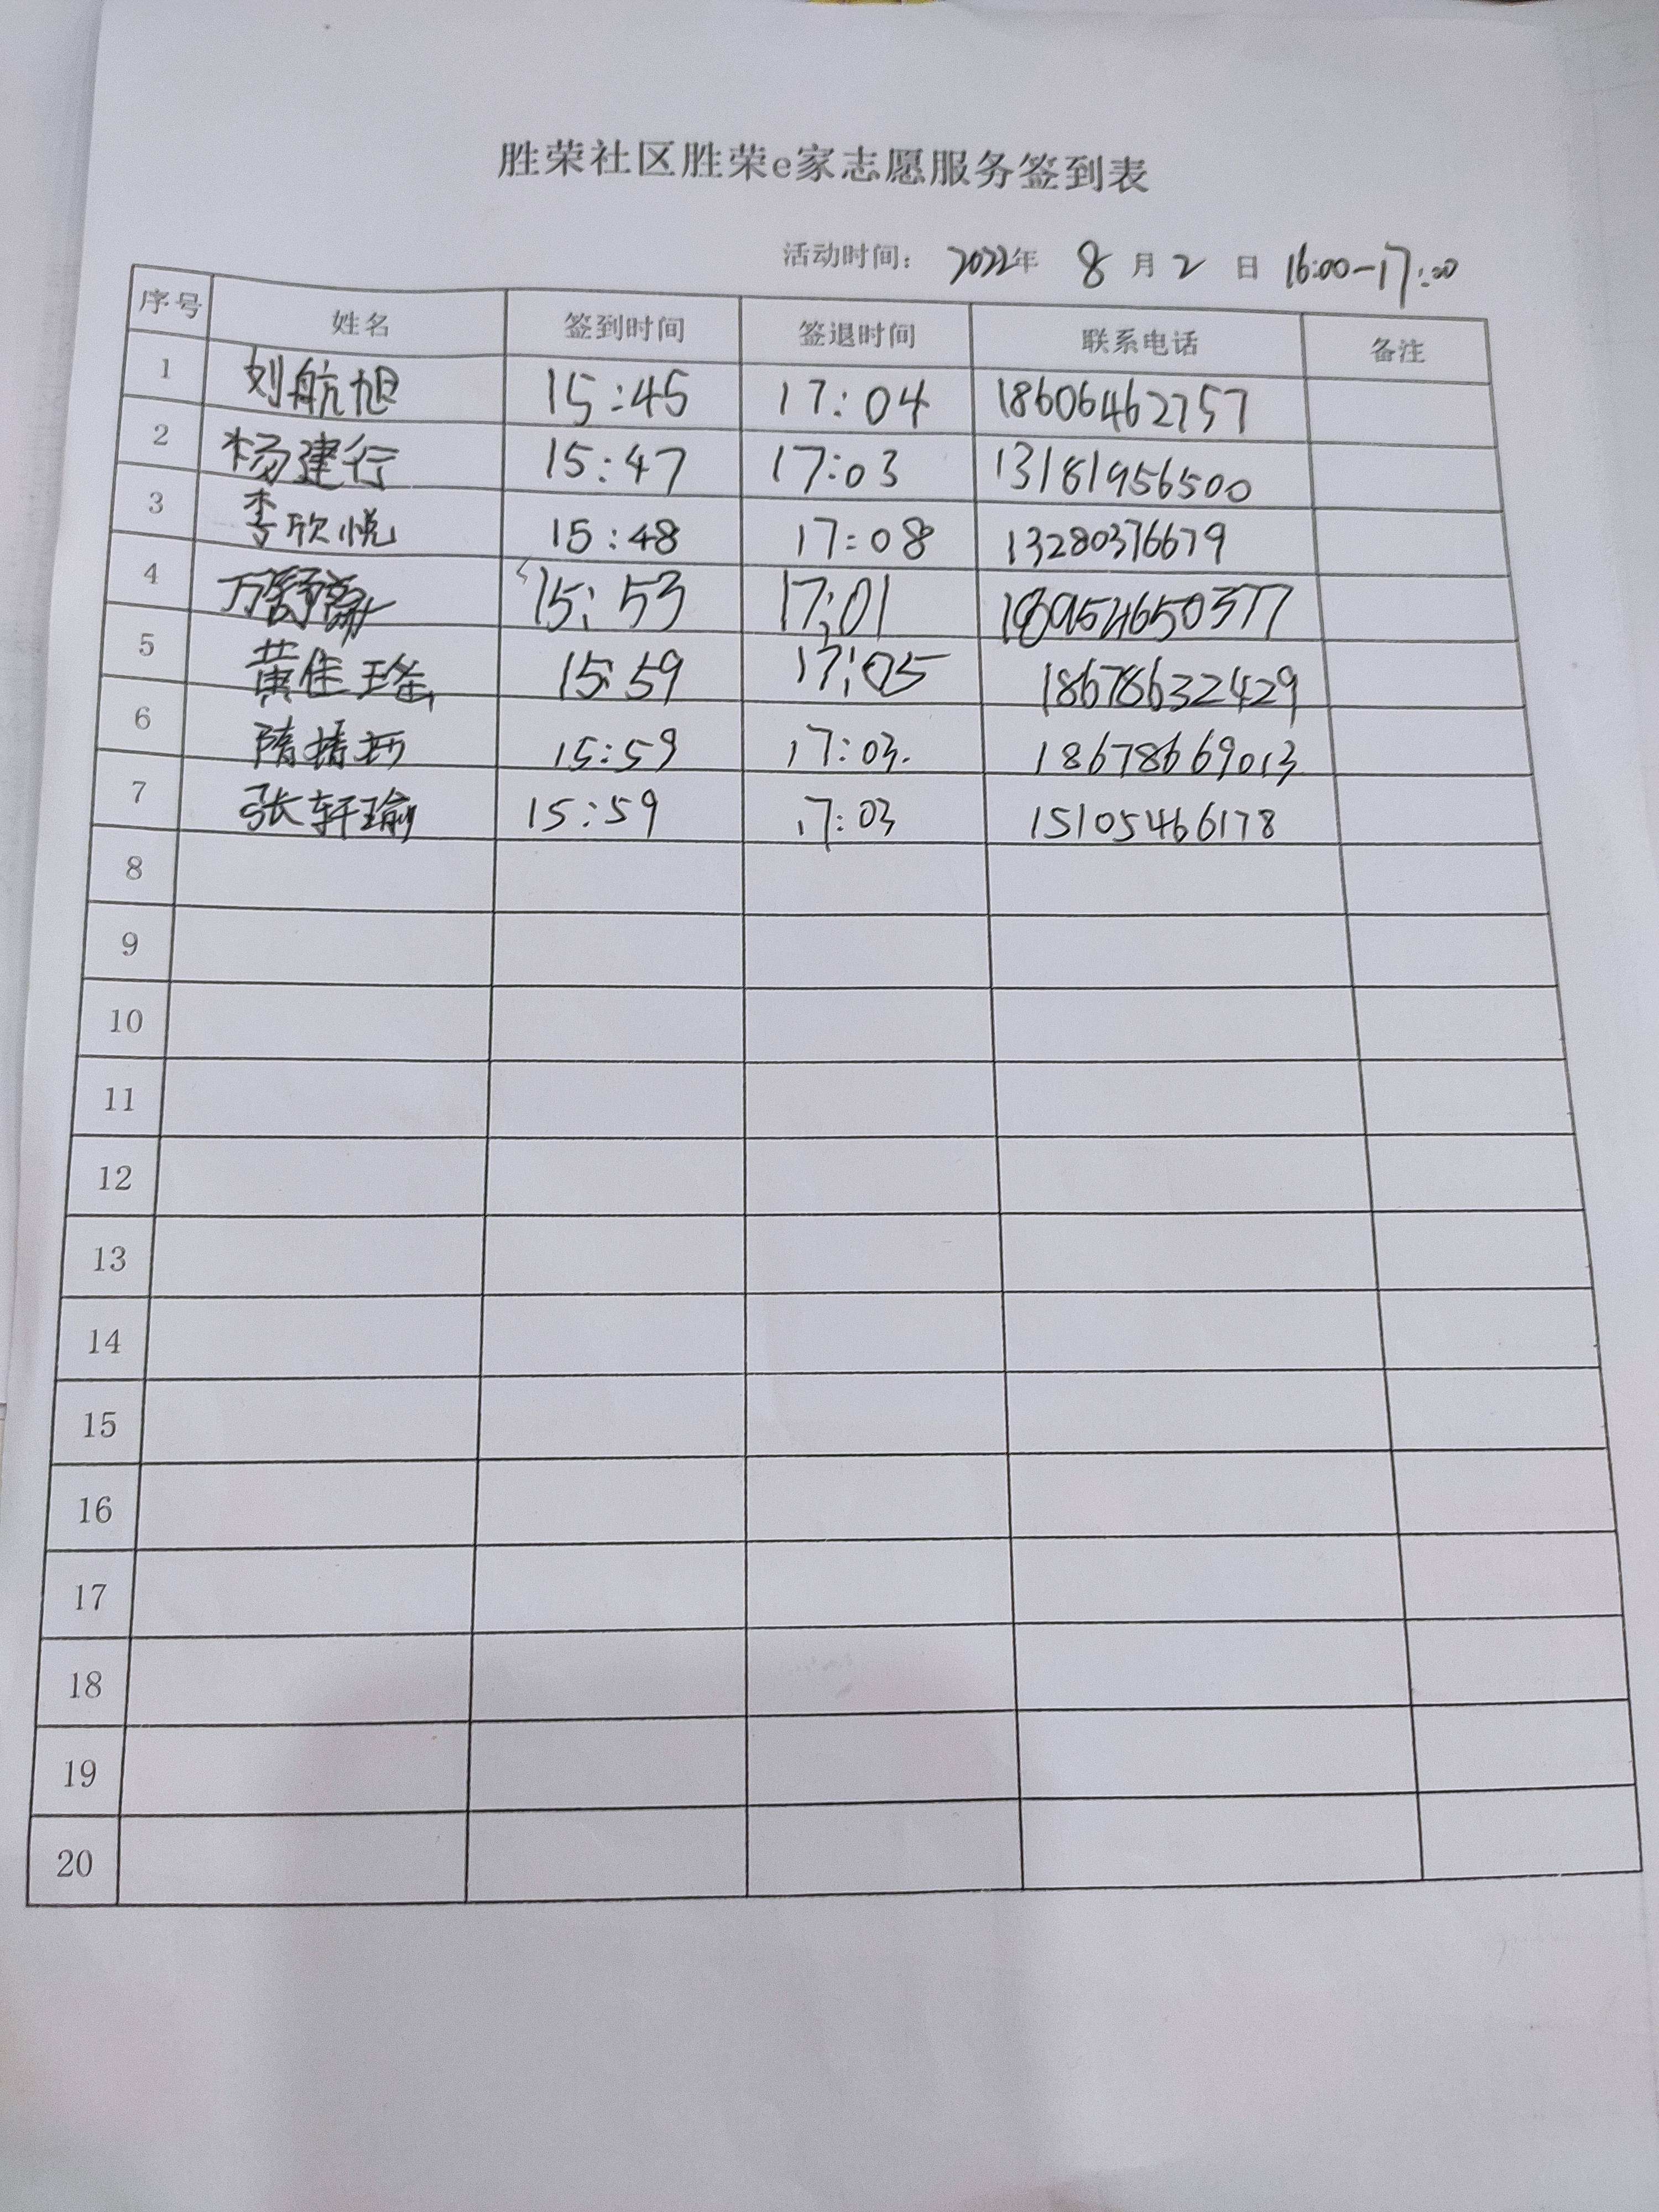 胜荣社区胜荣e家志愿服务签到表
活动时间： 2022年 8 月 2 日 16:00-17:00
序号 姓名 签到时间 签退时间 联系电话 备注
1 刘航旭 15:45 17:04 18606462757
2 杨建行 15:47 17:03 13181956500
3 李欣悦 15:48 17:08 13280376679
4 15:53 17:01
5 黄佳瑶 15:59 17:05 18678632429
6 隋 15:59 17:03. 18678669013
7 张轩瑜 15:59 17:03 15105466178
8
9
10
11
12
13
14
15
16
17
18
19
20